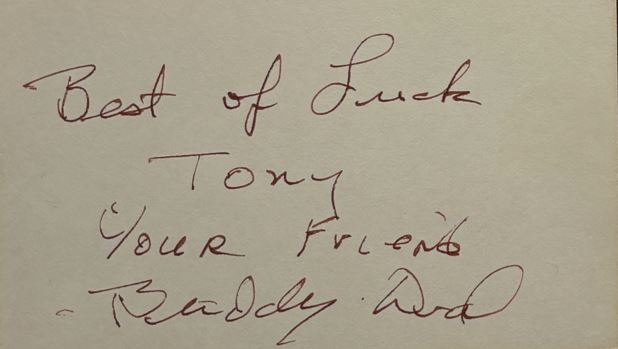 Best of Luck
Tony
Your Friend
Buddy